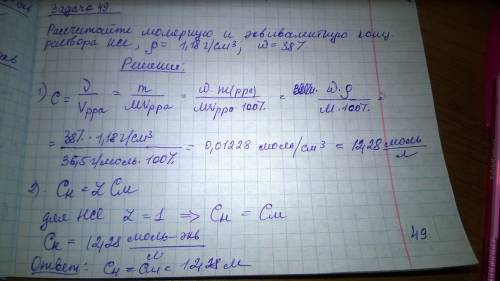 Задача 49
Рассчитайте молярную и эквивалентную конц.
раствора HCl, ρ = 1,18 г/см³, ω = 38%
Решение:
1) C = ν / Vрра = m / MVрра = ω · m(рра) / MVрра · 100% = ω · ρ / M · 100% =
= 38% · 1,18 г/см³ / 36,5 г/моль · 100% = 0,01228 моль/см³ = 12,28 моль/л
2) Cн = z Cм
для HCl z = 1 ⇒ Cн = Cм
Cн = 12,28 моль-экв/л
Ответ: Cн = Cм = 12,28 м
49.